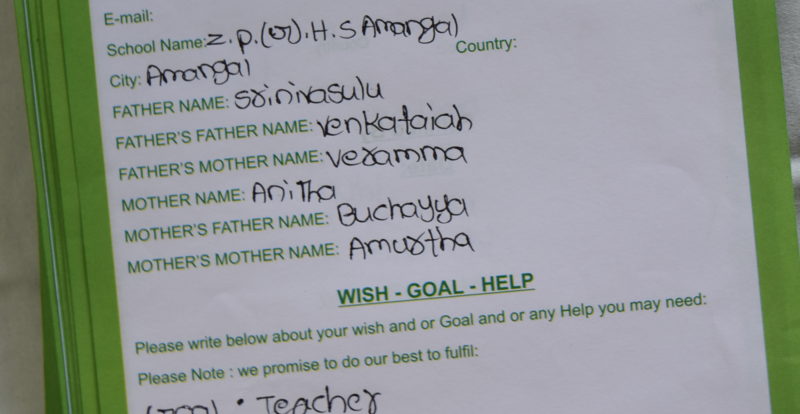 E-mail:
School Name: Z.P.(Gr).H.S Amangal
City: Amangal Country:
FATHER NAME: Srinivasulu
FATHER'S FATHER NAME: Venkataiah
FATHER'S MOTHER NAME: Veramma
MOTHER NAME: Anitha
MOTHER'S FATHER NAME: Buchayya
MOTHER'S MOTHER NAME: Amurtha
WISH - GOAL - HELP
Please write below about your wish and or Goal and or any Help you may need:
Please Note : we promise to do our best to fulfil:
Goal • Teacher